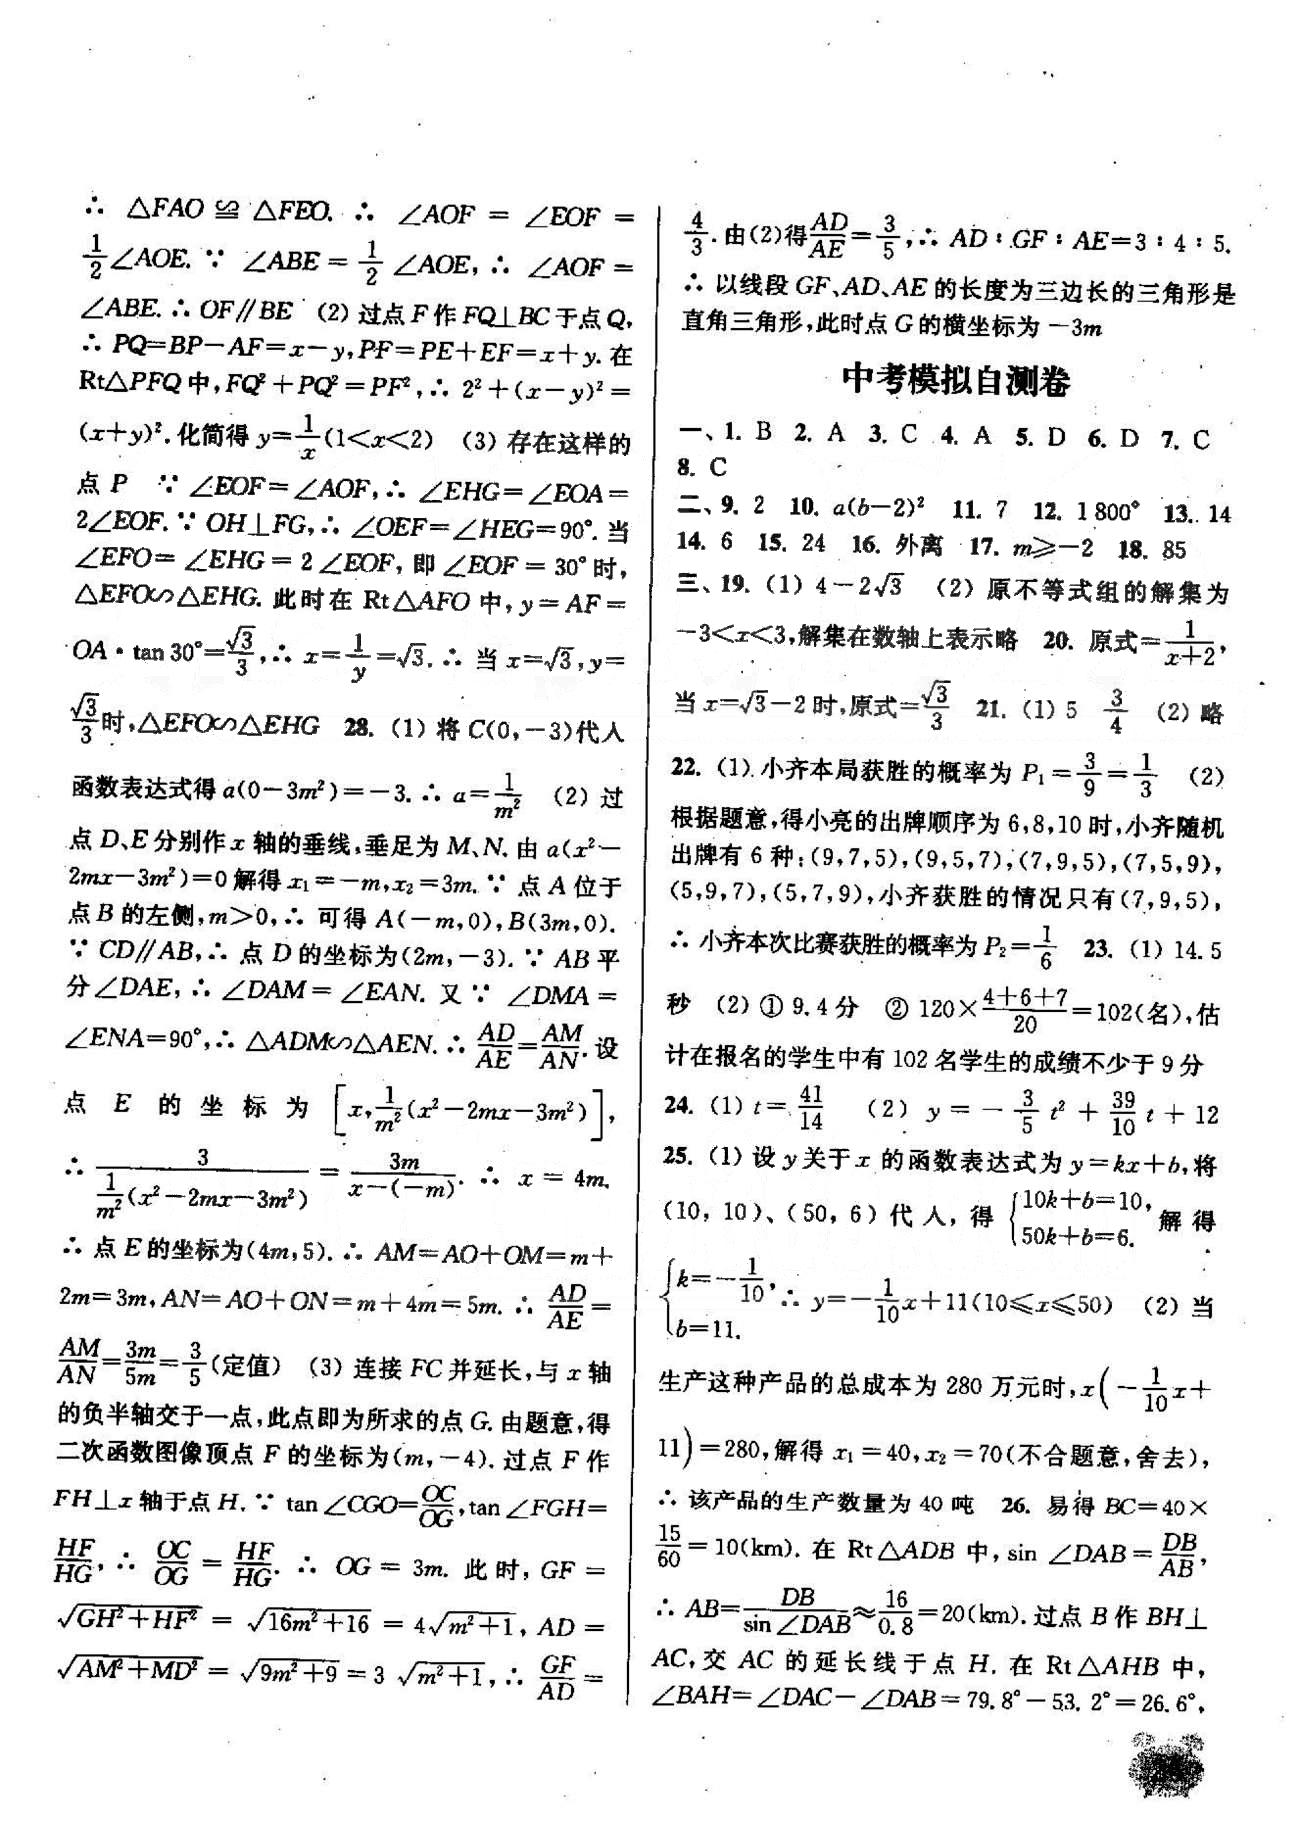 ∴ △FAO≌△FEO. ∴ ∠AOF = ∠EOF =
1/2∠AOE. ∵ ∠ABE = 1/2 ∠AOE, ∴ ∠AOF =
∠ABE. ∴ OF∥BE (2) 过点F作FQ⊥BC于点Q,
∴ PQ=BP－AF=x－y,PF=PE＋EF=x＋y. 在
Rt△PFQ中,FQ²＋PQ²=PF²,∴ 2²＋(x－y)²=
(x＋y)². 化简得y=1/x(1<x<2) (3) 存在这样的
点P ∵ ∠EOF=∠AOF,∴ ∠EHG=∠EOA=
2∠EOF. ∵ OH⊥FG,∴ ∠OEF=∠HEG=90°. 当
∠EFO= ∠EHG = 2 ∠EOF, 即 ∠EOF = 30° 时,
△EFO∽△EHG. 此时在 Rt△AFO 中, y = AF =
OA·tan 30°=√3/3,∴ x=1/y=√3. ∴ 当x=√3,y=
√3/3时,△EFO∽△EHG 28. (1) 将C(0,－3)代入
函数表达式得a(0－3m²)=－3. ∴ a=1/m² (2) 过
点D、E分别作x轴的垂线,垂足为M、N. 由a(x²－
2mx－3m²)=0解得x₁=－m,x₂=3m. ∵ 点A位于
点B的左侧,m>0,∴ 可得A(－m,0),B(3m,0).
∵ CD∥AB,∴ 点D的坐标为(2m,－3). ∵ AB平
分∠DAE,∴ ∠DAM= ∠EAN. 又∵ ∠DMA =
∠ENA=90°,∴ △ADM∽△AEN. ∴ AD/AE=AM/AN. 设
点 E 的坐标为 [x,1/m²(x²－2mx－3m²)],
∴ 3/(1/m²(x²－2mx－3m²)) = 3m/(x－(－m)). ∴ x = 4m.
∴ 点E的坐标为(4m,5). ∴ AM=AO＋OM=m＋
2m=3m,AN=AO＋ON=m＋4m=5m. ∴ AD/AE =
AM/AN=3m/5m=3/5(定值) (3) 连接FC并延长,与x轴
的负半轴交于一点,此点即为所求的点G. 由题意,得
二次函数图像顶点F的坐标为(m,－4). 过点F作
FH⊥x轴于点H. ∵ tan∠CGO=OC/OG,tan∠FGH=
HF/HG, ∴ OC/OG = HF/HG. ∴ OG = 3m. 此时, GF =
√(GH²＋HF²) = √(16m²＋16) = 4√(m²＋1), AD =
√(AM²＋MD²) = √(9m²＋9) = 3 √(m²＋1), ∴ GF/AD =
4/3. 由(2)得AD/AE=3/5,∴ AD∶GF∶AE=3∶4∶5.
∴ 以线段GF、AD、AE的长度为三边长的三角形是
直角三角形,此时点G的横坐标为－3m
中考模拟自测卷
一、1. B 2. A 3. C 4. A 5. D 6. D 7. C
8. C
二、9. 2 10. a(b－2)² 11. 7 12. 1 800° 13. 14
14. 6 15. 24 16. 外离 17. m≥－2 18. 85
三、19. (1) 4－2√3 (2) 原不等式组的解集为
－3<x<3,解集在数轴上表示略 20. 原式=1/(x＋2),
当x=√3－2时,原式=√3/3 21. (1) 5 3/4 (2) 略
22. (1) 小齐本局获胜的概率为P₁=3/9=1/3 (2)
根据题意,得小亮的出牌顺序为6,8,10时,小齐随机
出牌有6种:(9,7,5),(9,5,7),(7,9,5),(7,5,9),
(5,9,7),(5,7,9),小齐获胜的情况只有(7,9,5),
∴ 小齐本次比赛获胜的概率为P₂=1/6 23. (1) 14.5
秒 (2) ① 9.4分 ② 120×(4＋6＋7)/20=102(名),估
计在报名的学生中有102名学生的成绩不少于9分
24. (1) t=41/14 (2) y = － 3/5 t² ＋ 39/10 t ＋ 12
25. (1) 设y关于x的函数表达式为y=kx＋b,将
(10, 10)、(50, 6) 代入, 得 {10k＋b=10, 50k＋b=6. 解得
{k=－1/10, b=11. ∴ y=－1/10x＋11(10≤x≤50) (2) 当
生产这种产品的总成本为280万元时,x(－1/10x＋
11)=280,解得x₁=40,x₂=70(不合题意,舍去),
∴ 该产品的生产数量为40吨 26. 易得BC=40×
15/60=10(km). 在 Rt△ADB 中, sin ∠DAB=DB/AB,
∴ AB=DB/sin∠DAB≈16/0.8=20(km). 过点B作BH⊥
AC,交 AC 的延长线于点 H. 在 Rt△AHB 中,
∠BAH=∠DAC－∠DAB=79.8°－53.2°=26.6°,